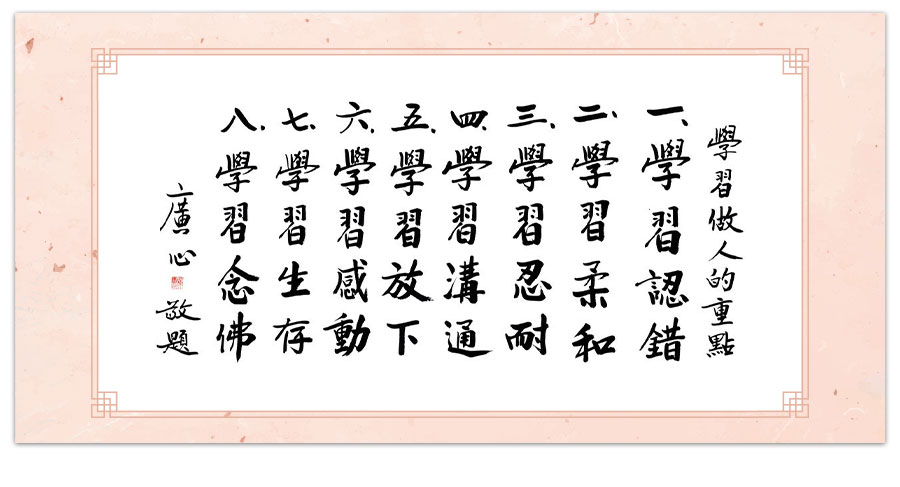 學習做人的重點
一、學習認錯
二、學習柔和
三、學習忍耐
四、學習溝通
五、學習放下
六、學習感動
七、學習生存
八、學習念佛
廣心 敬題